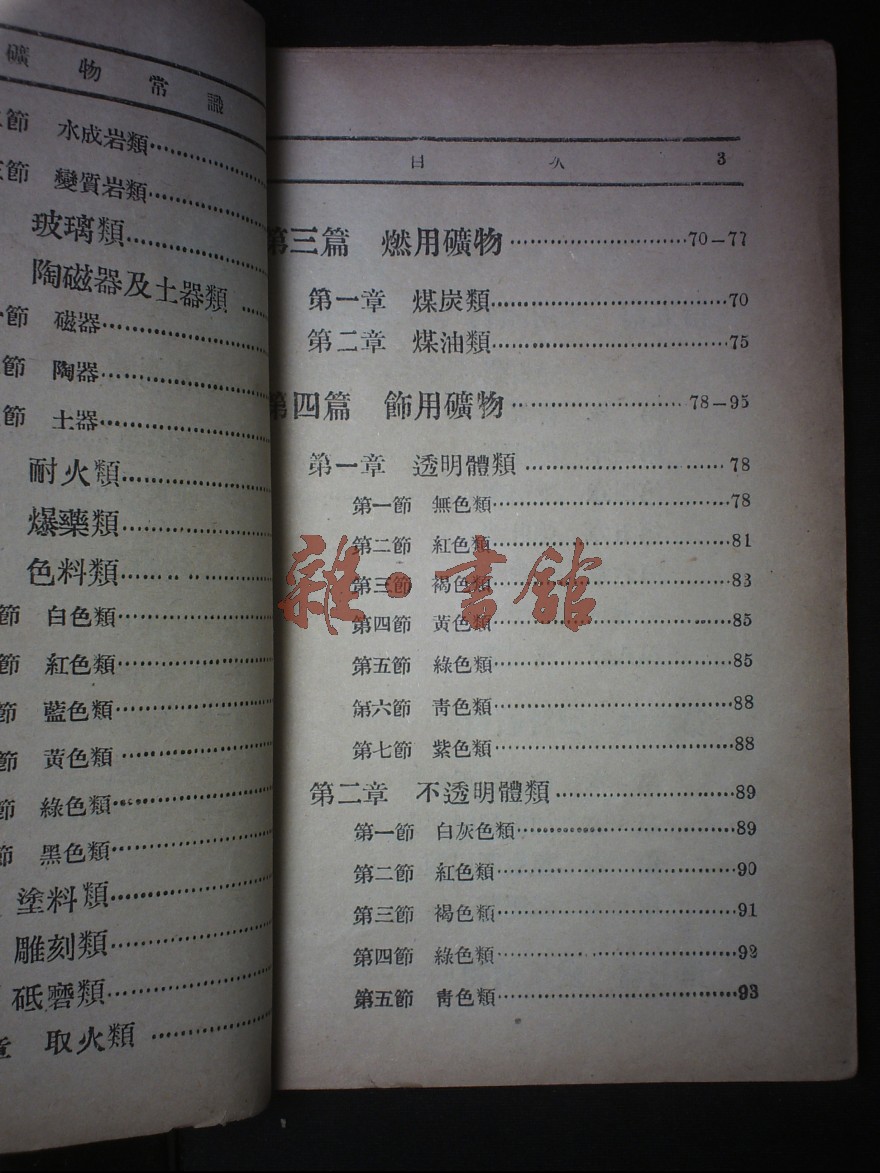 礦物常識
節 水成岩類
節 變質岩類
玻璃類
陶磁器及土器類
節 磁器
節 陶器
節 土器
耐火類
爆藥類
色料類
節 白色類
節 紅色類
節 藍色類
節 黃色類
節 綠色類
節 黑色類
塗料類
雕刻類
砥磨類
章 取火類
目 次 3
第三篇 燃用礦物 70-77
第一章 煤炭類 70
第二章 煤油類 75
第四篇 飾用礦物 78-95
第一章 透明體類 78
第一節 無色類 78
第二節 紅色類 81
第三節 褐色類 83
第四節 黃色類 85
第五節 綠色類 85
第六節 靑色類 88
第七節 紫色類 88
第二章 不透明體類 89
第一節 白灰色類 89
第二節 紅色類 90
第三節 褐色類 91
第四節 綠色類 92
第五節 靑色類 93
雜·書館